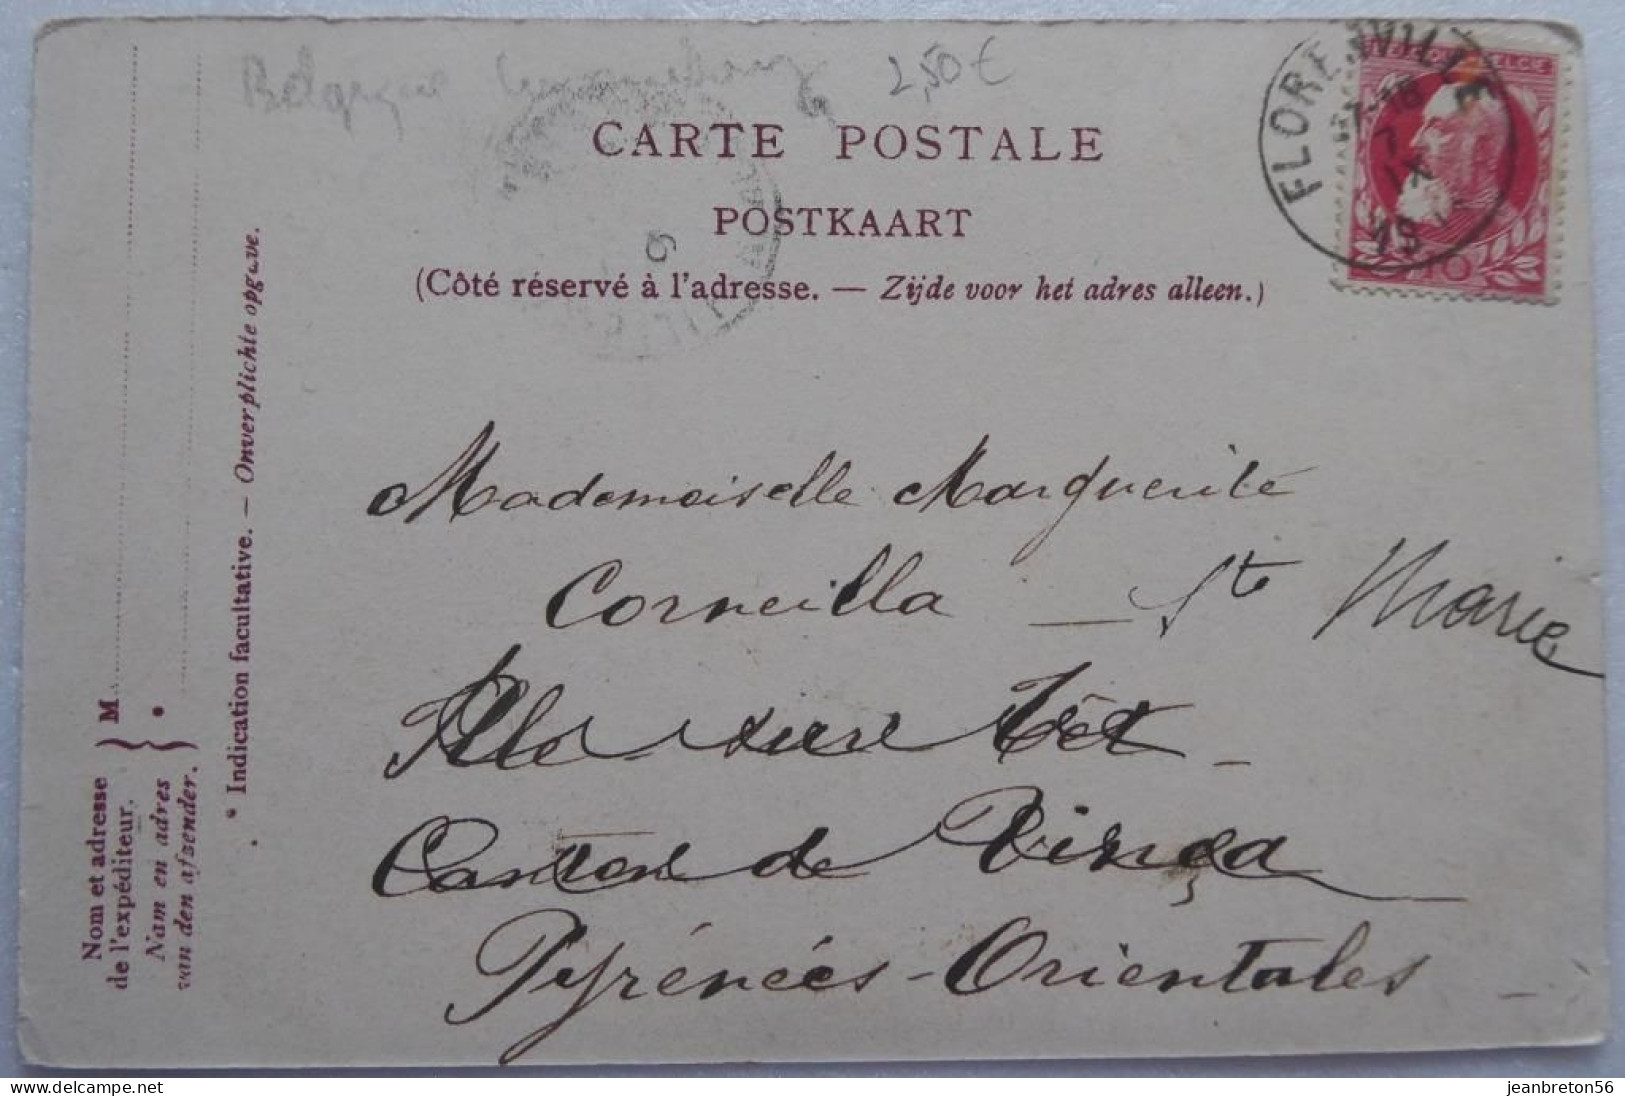 Belgique Luxembourg 2,50 €
CARTE POSTALE
POSTKAART
(Côté réservé à l'adresse. — Zijde voor het adres alleen.)
FLORENVILLE
7
IX
BELGIE
10
6
Mademoiselle Marguerite
Corneilla — St Marie
Ille sur Têt -
Canton de Vinça
Pyrénées-Orientales -
Nom et adresse
de l'expéditeur.
Nam en adres
van den afzender.
M
* Indication facultative. — Onverplichte opgave.
delcampe.net
jeanbreton56